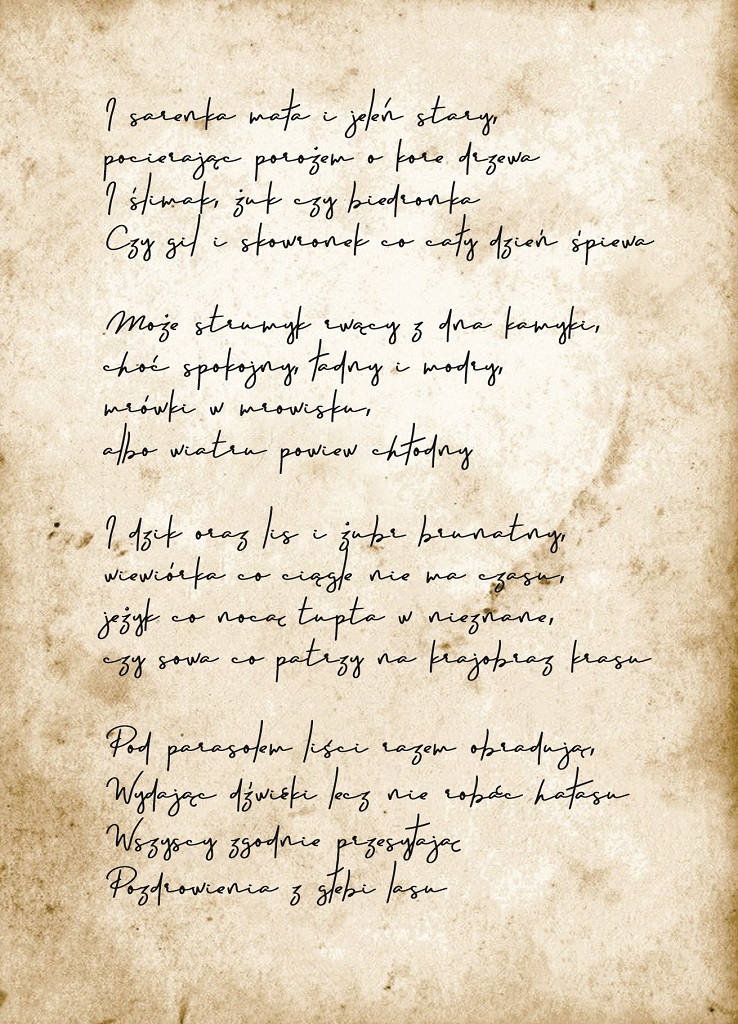 I sarenka mała i jeleń stary,
pocierając porożem o kore drzewa
I ślimak, żuk czy biedronka
Czy gil i skowronek co cały dzień śpiewa
Może strumyk rwący z dna kamyki,
choć spokojny, ładny i modry,
mrówki w mrowisku,
albo wiatru powiew chłodny
I dzik oraz lis i żubr brunatny,
wiewiórka co ciągle nie ma czasu,
jeżyk co nocą tupta w nieznane,
czy sowa co patrzy na krajobraz krasu
Pod parasolem liści razem obradują,
Wydając dźwięki lecz nie robąc hałasu
Wszyscy zgodnie przesyłają
Pozdrowienia z głębi lasu